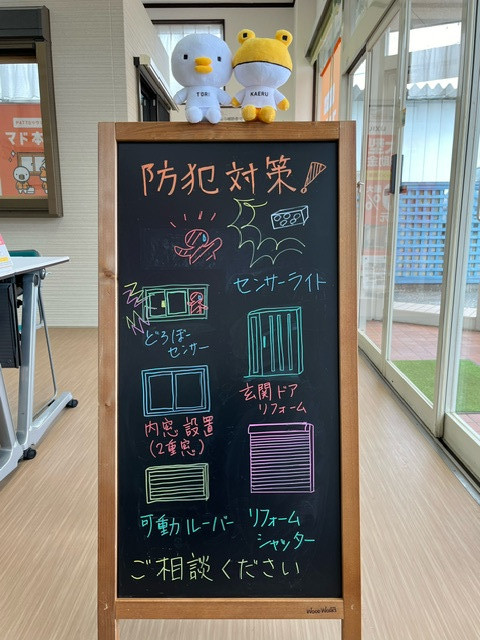 TORI
KAERU
マド本
防犯対策!
センサーライト
どろぼー
センサー
玄関ドア
リフォーム
内窓設置
(2重窓)
可動ルーバー
リフォーム
シャッター
ご相談ください